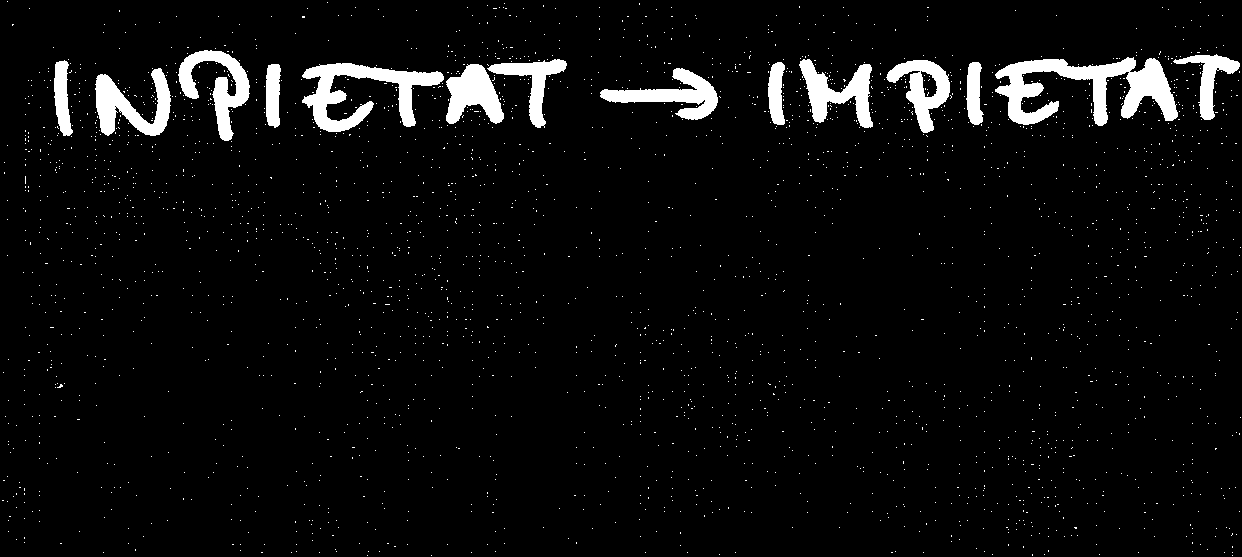 INPIETAT → IMPIETAT